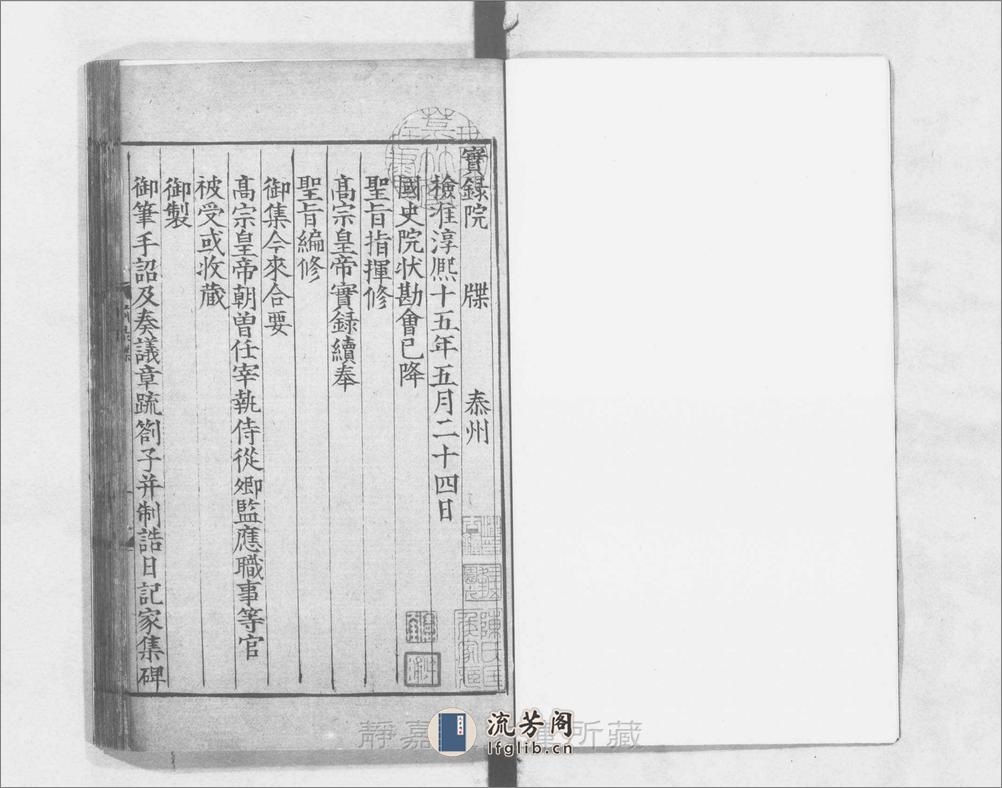 實録院　牒　泰州
檢准淳熈十五年五月二十四日
國史院状勘會已降
聖旨指揮修
髙宗皇帝實録續奉
聖旨編修
御集今來合要
髙宗皇帝朝曽任宰執侍從卿監應職事等官
被受或收蔵
御製
御筆手詔及奏議章疏劄子并制誥日記家集碑
靜嘉
所藏
流芳阁
lfglib.cn